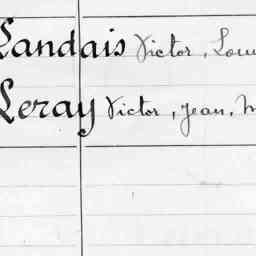 Landais Victor, Lou
Leray Victor, Jean, M